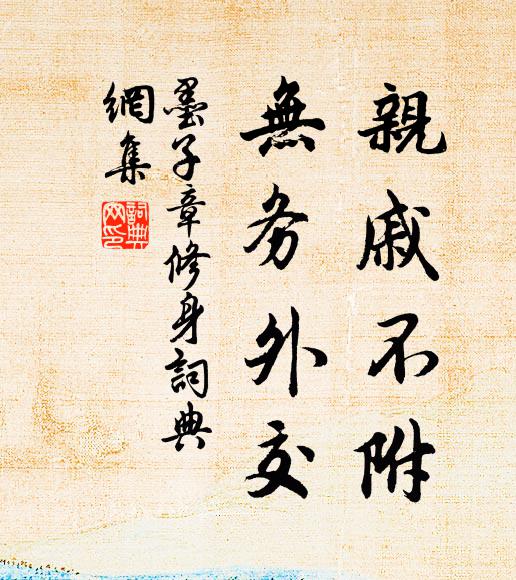 親戚不附
無务外交
墨子章修身詞典
網集
詞典
网印